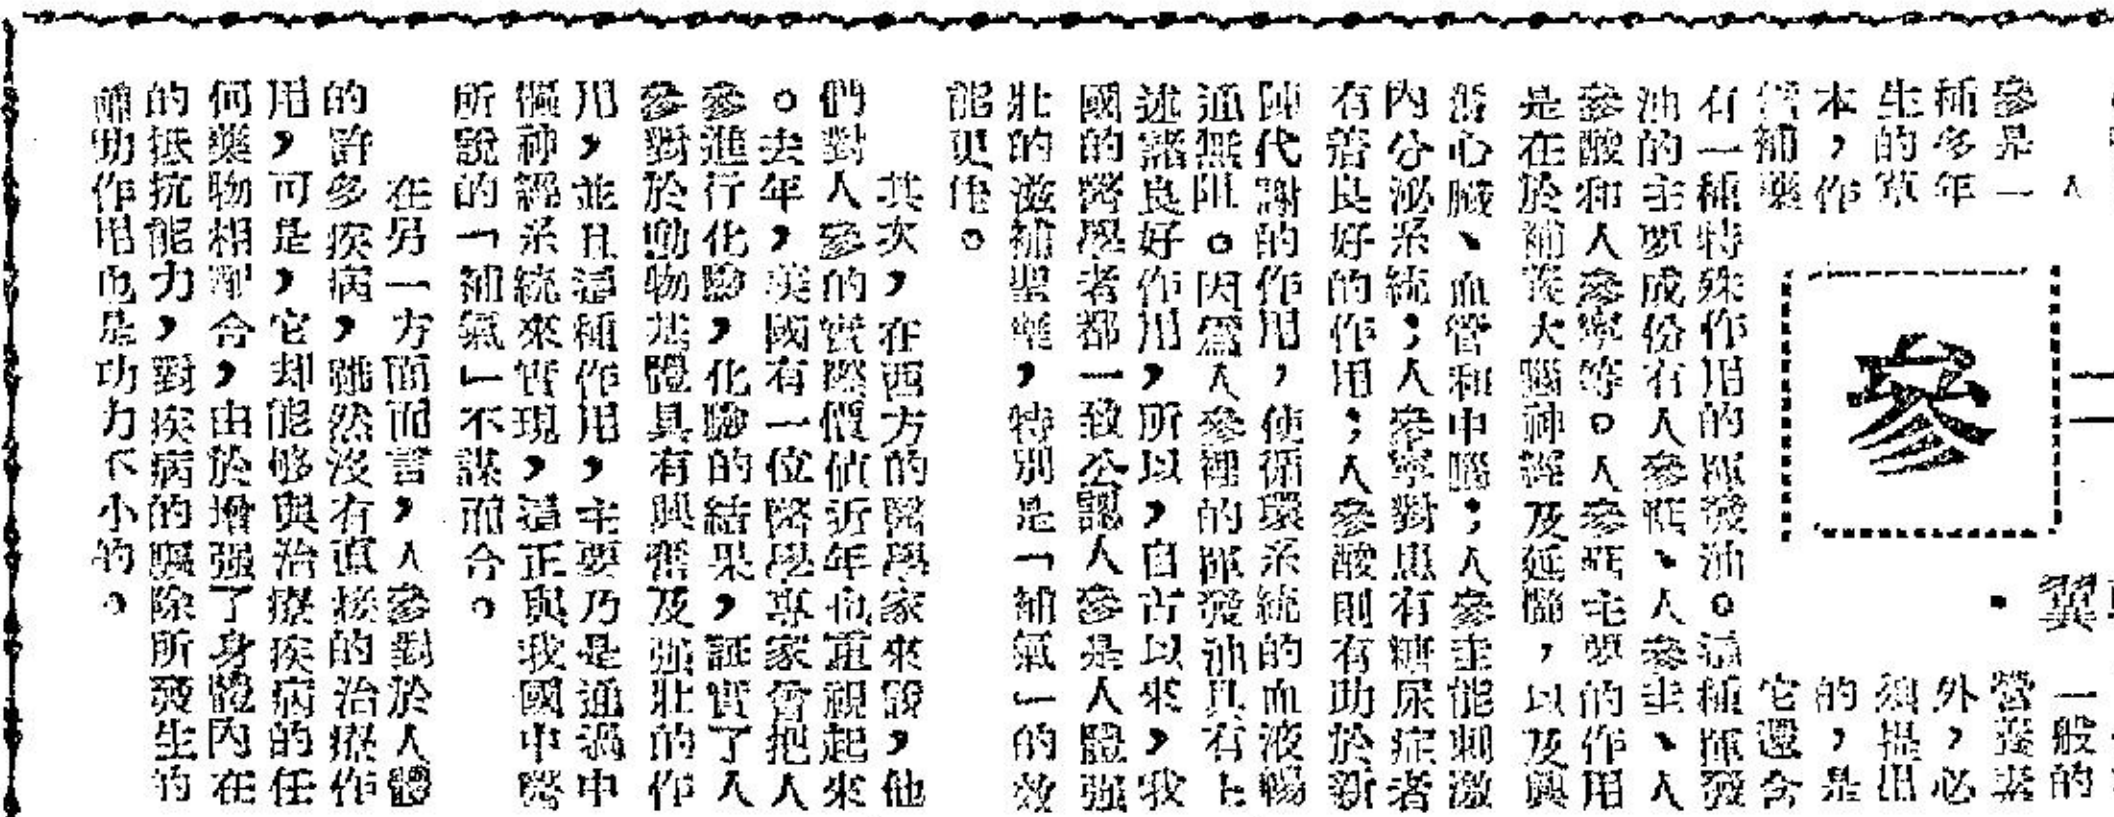 人
參是一
種多年
生的草
本，作
補藥
參
翼
一般的
營養素
外，必
須提出
的，是
它還含
有一種特殊作用的揮發油。這種揮發
油的主要成份有人參、人參圭、人
參酸和人參寧等。人參主要的作用
是在於補養大腦神經及延髓，以及興
奮心臟、血管和中腦；人參圭能刺激
內分泌系統；人參寧對患有糖尿症者
有着良好的作用；人參酸則有助於新
陳代謝的作用，使循環系統的血液暢
通無阻。因為人參裡的揮發油具有上
述諸良好作用，所以，自古以來，我
國的醫學者都一致公認人參是人體强
壯的滋補聖藥，特別是「補氣」的效
能更佳。
其次，在西方的醫學家來說，他
們對人參的實際價值近年也重視起來
。去年，英國有一位醫學專家會把人
參進行化驗，化驗的結果，証實了人
參對於動物其體具有興奮及强壯的作
用，並且這種作用，主要乃是通過中
樞神經系統來實現，這正與我國中醫
所說的「補氣」不謀而合。
在另一方面而言，人參對於人體
的許多疾病，雖然沒有直接的治療作
用，可是，它却能够與治療疾病的任
何藥物相配合，由於增强了身體內在
的抵抗能力，對疾病的驅除所發生的
補助作用也是功力不小的。